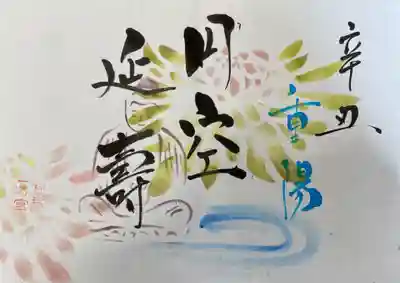 辛丑
重陽
月空
延壽